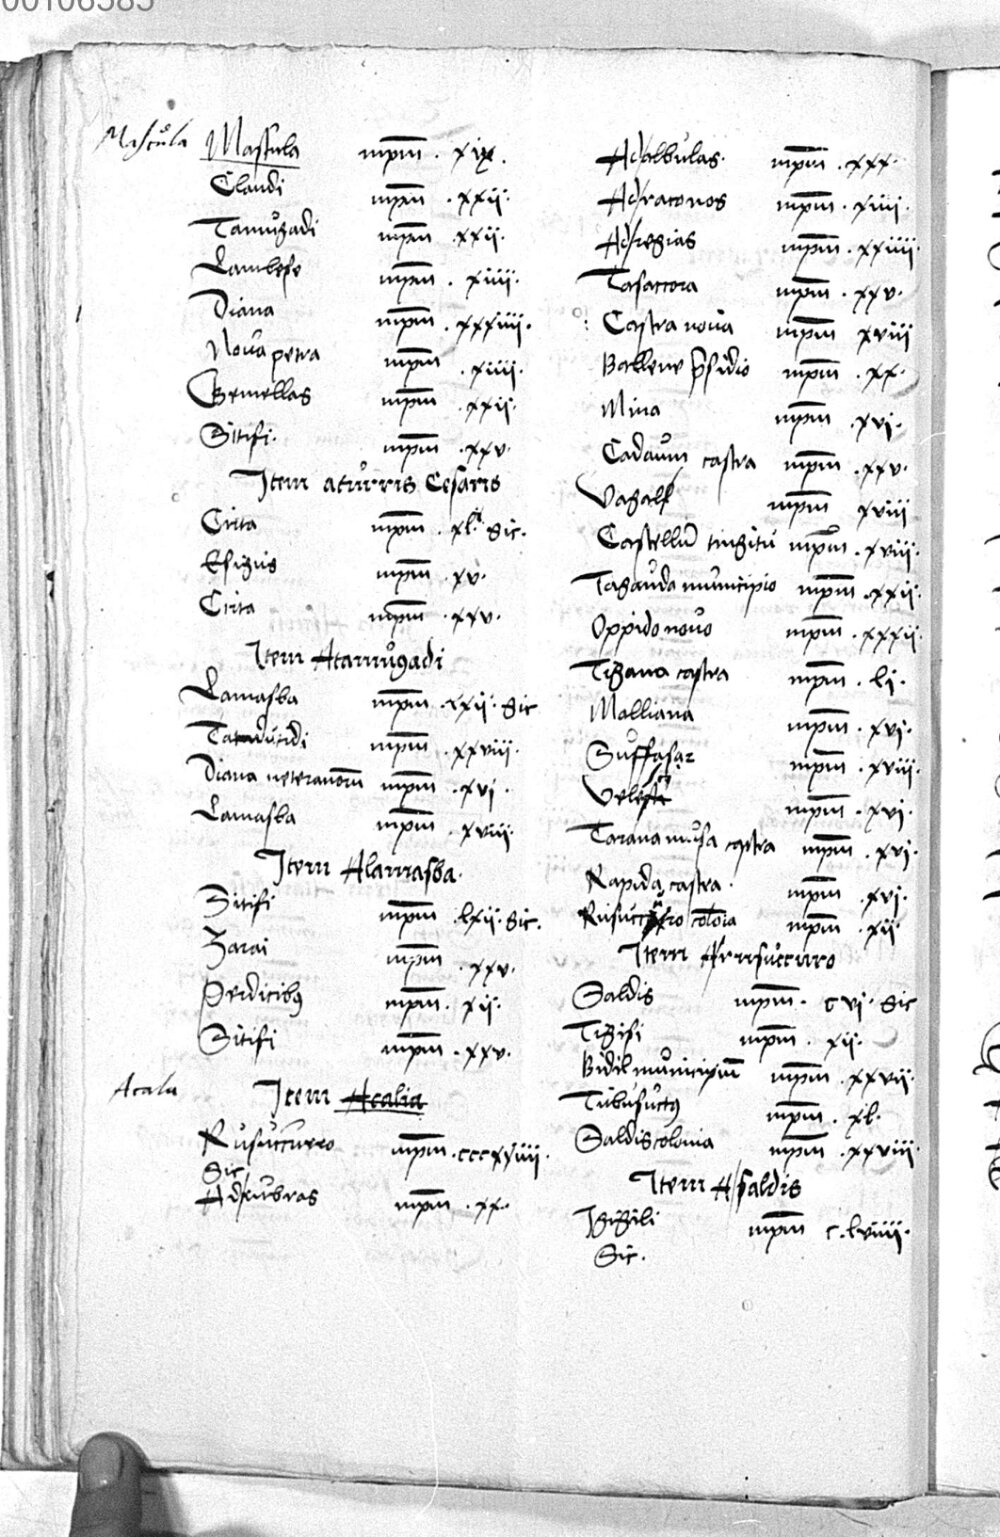 00106585
Mascula
Massula mpm . xix.
Claudi mpm . xxii.
Tamugadi mpm . xxii.
Lambese mpm . xiiii.
Diana mpm . xxxiiii.
Nova petra mpm . xiiii.
Gemellas mpm . xxii.
Sitifi. mpm . xxv.
Item aturris Cesaris
Cirta mpm . xl. sic.
Esigus mpm . xv.
Cirta mpm . xxv.
Item Atamugadi
Lamasba mpm . xxii. sic
mpm . xxviii.
Diana veteranorum mpm . xvi.
Lamasba mpm . xviii.
Item Alamasba.
Sitifi mpm . lxii. sic.
Zarai mpm . xxv.
Perdicibus mpm . xii.
Sitifi mpm . xxv.
Acalu
Item Acalia
Rusuccurro mpm .cccxviiii.
Sic
Adrubras mpm . xx.
Adalbulas. mpm . xxx.
Adraconos mpm . xiiii.
Adregias mpm . xxiiii.
Tasaccora mpm . xxv.
Castra nova mpm xviii
Ballene psidio mpm . xx.
Mina mpm . xvi.
Gadaum castra mpm . xxv.
Vagalsp mpm xviii
Castellu tingitii mpm . xviii.
Tagauda municipio mpm . xxii.
Oppido novo mpm . xxxii.
Tigava castra mpm . li.
Malliana mpm . xvi.
Suffasar mpm . xviii.
mpm . xvi.
Tarana musa castra mpm . xvi.
Rapida castra. mpm . xvi.
colonia mpm . xii.
Item Arusuccurro
Saldis mpm . cvi. sic
Tigisi mpm . xii.
Bidil municipium mpm . xxvii.
Tubusuctus mpm . xl.
Saldis colonia mpm . xxviii.
Item Asaldis
Igigili mpm c.lviiii.
Sic.